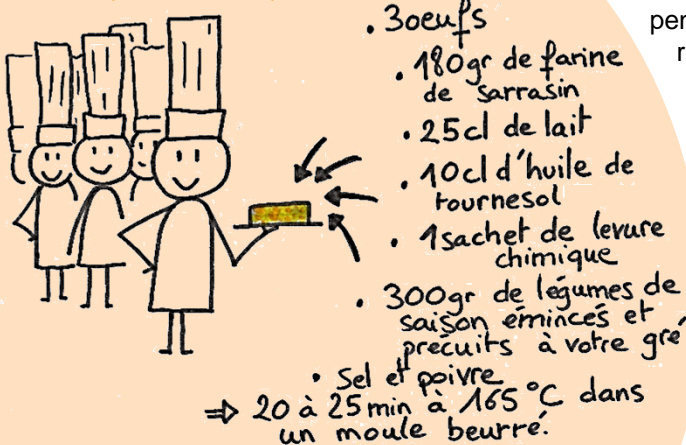 . 3 oeufs
. 180gr de farine
de sarrasin
. 25cl de lait
. 10cl d'huile de
tournesol
. 1 sachet de levure
chimique
. 300gr de légumes de
saison émincés et
précuits à votre gré
. Sel et poivre
⇒ 20 à 25 min à 165 °C dans
un moule beurré.